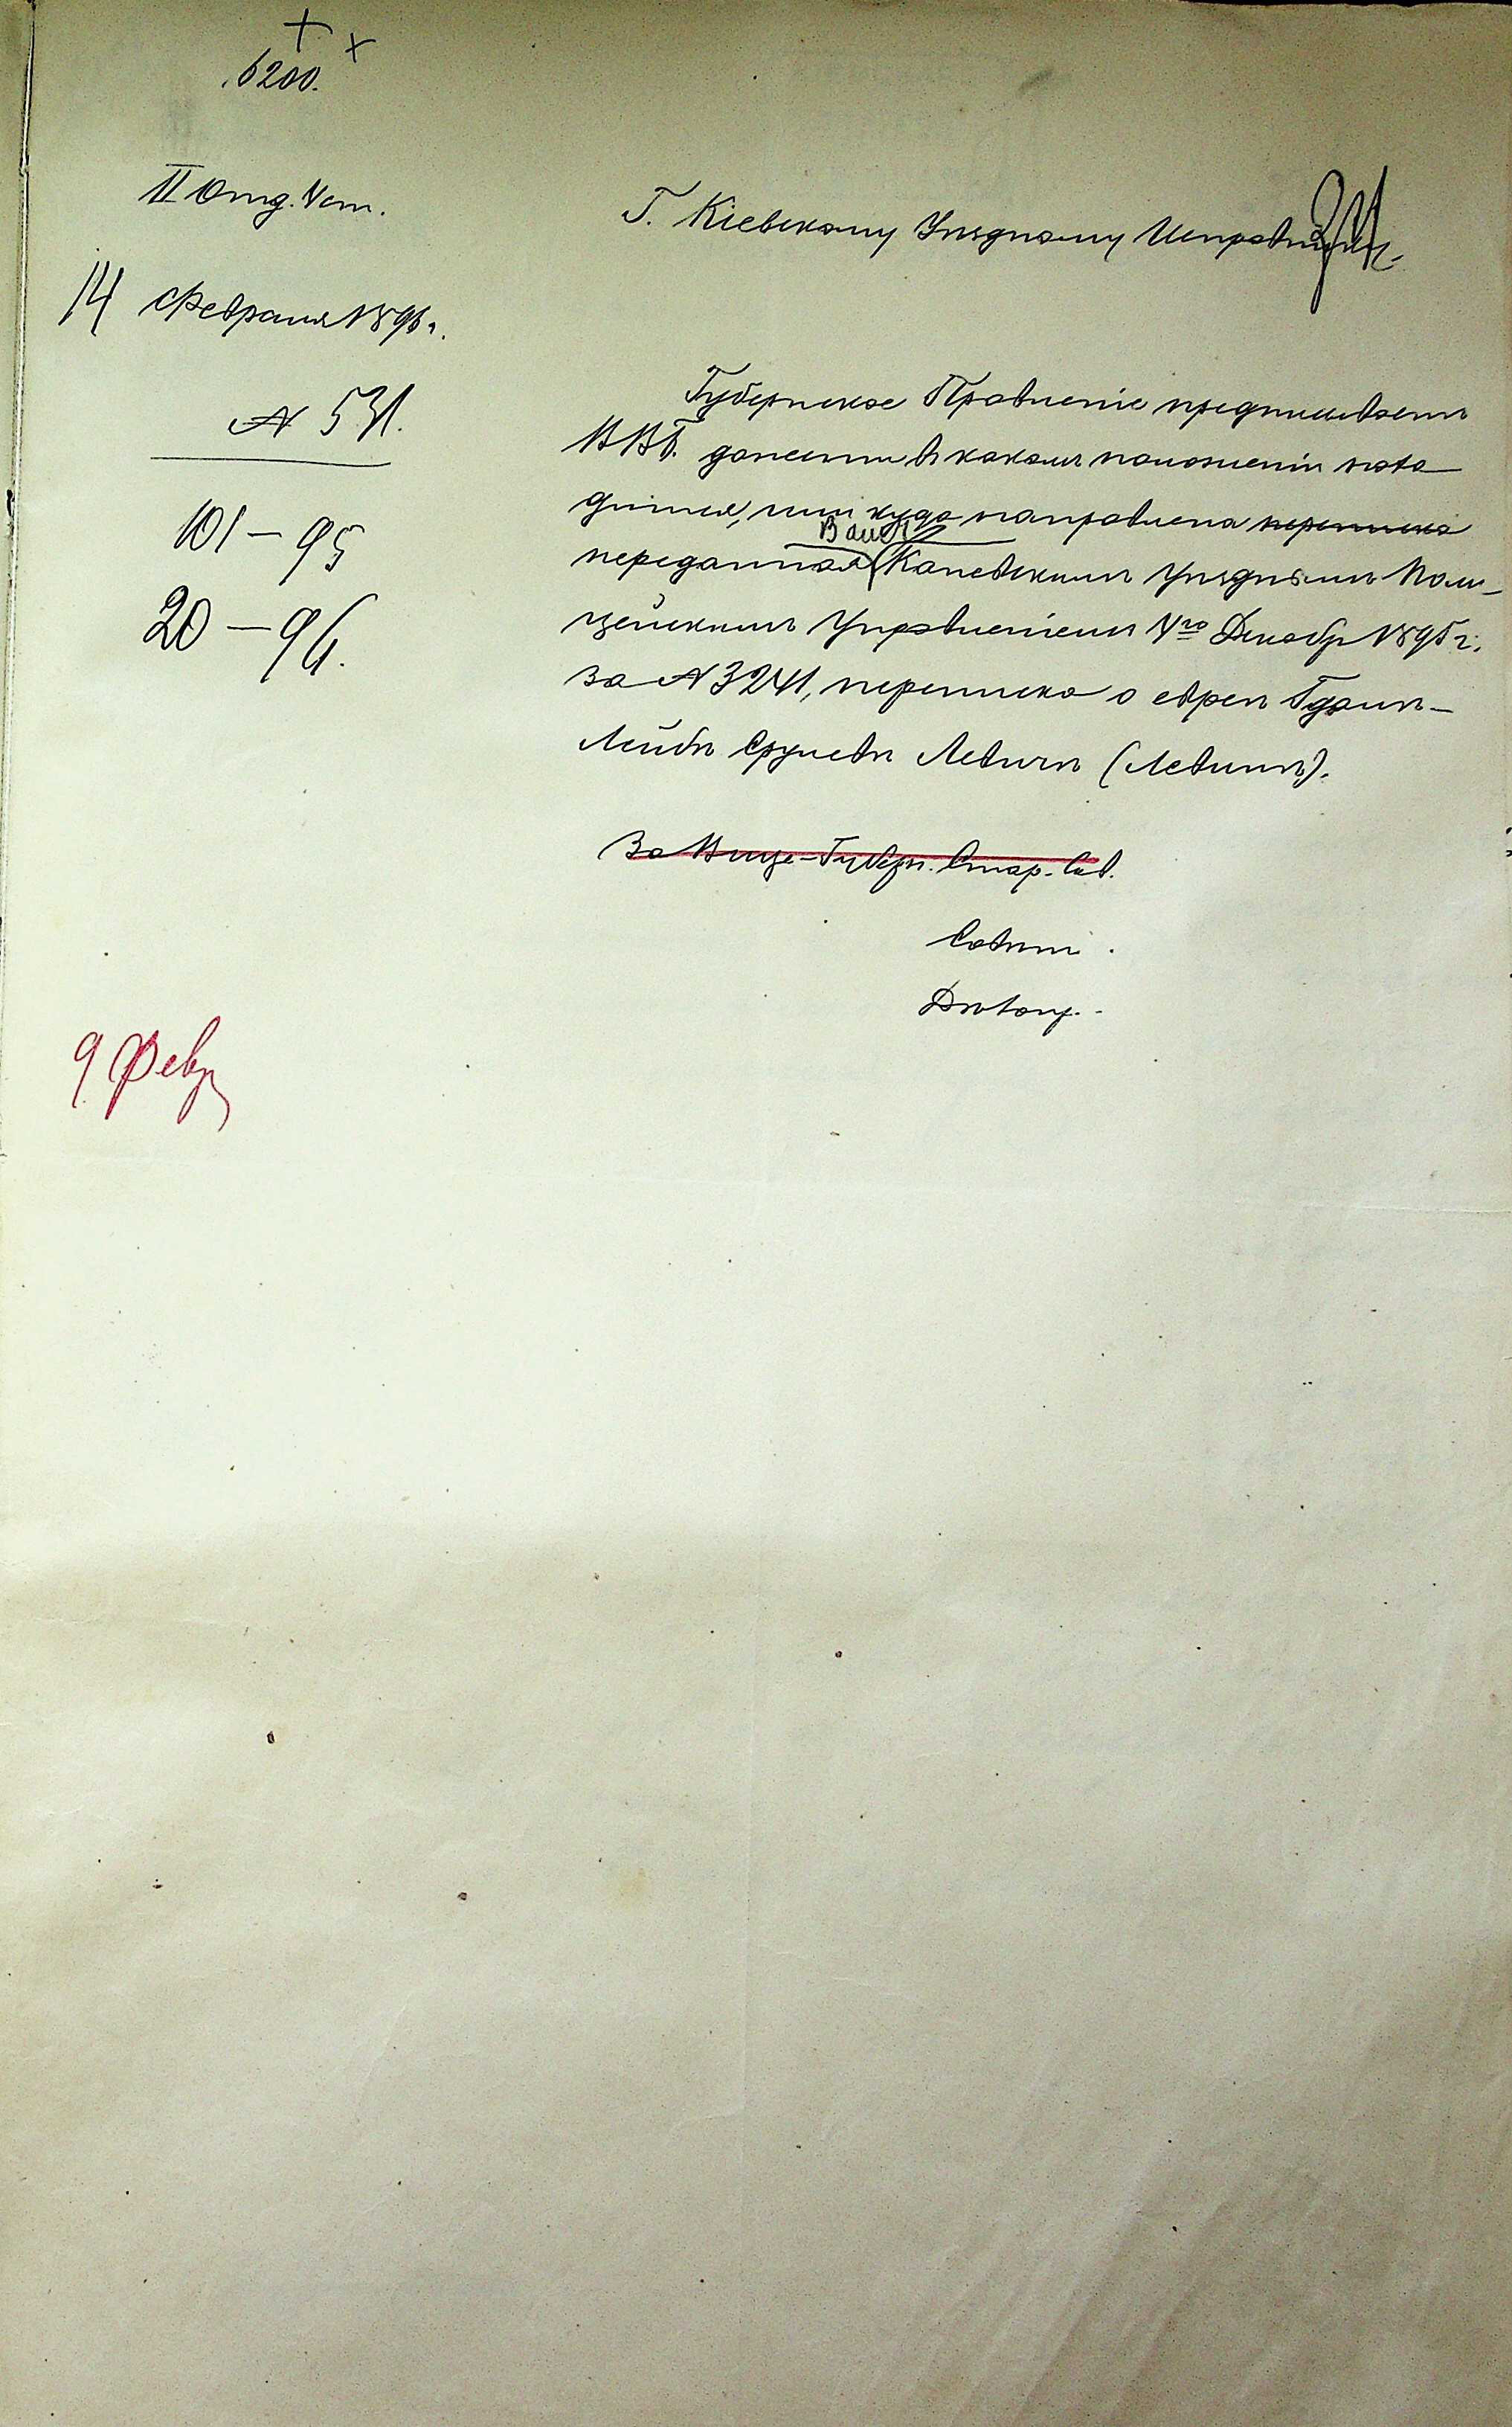 6200.
II Отд. 4 ст.
14 Февраля 1896 г.
№ 531.
101 – 95
20 – 96.
9 Февр
Г. Кіевскому Уѣздному Исправнику.
Губернское Правленіе предписываетъ
ВВБ. донести въ какомъ положеніи нахо-
дится, или куда направлена переписка
Вамъ
переданная Каневскимъ Уѣзднымъ Поли-
цейскимъ Управленіемъ 4го Декабр 1895 г.
за № 3241, переписка о евреѣ Гдаль-
Лейбѣ Срулевѣ Левичѣ (Левинъ).
За Вице-Губерн. Стар. Сов.
Совѣтн.
Дѣлопр.